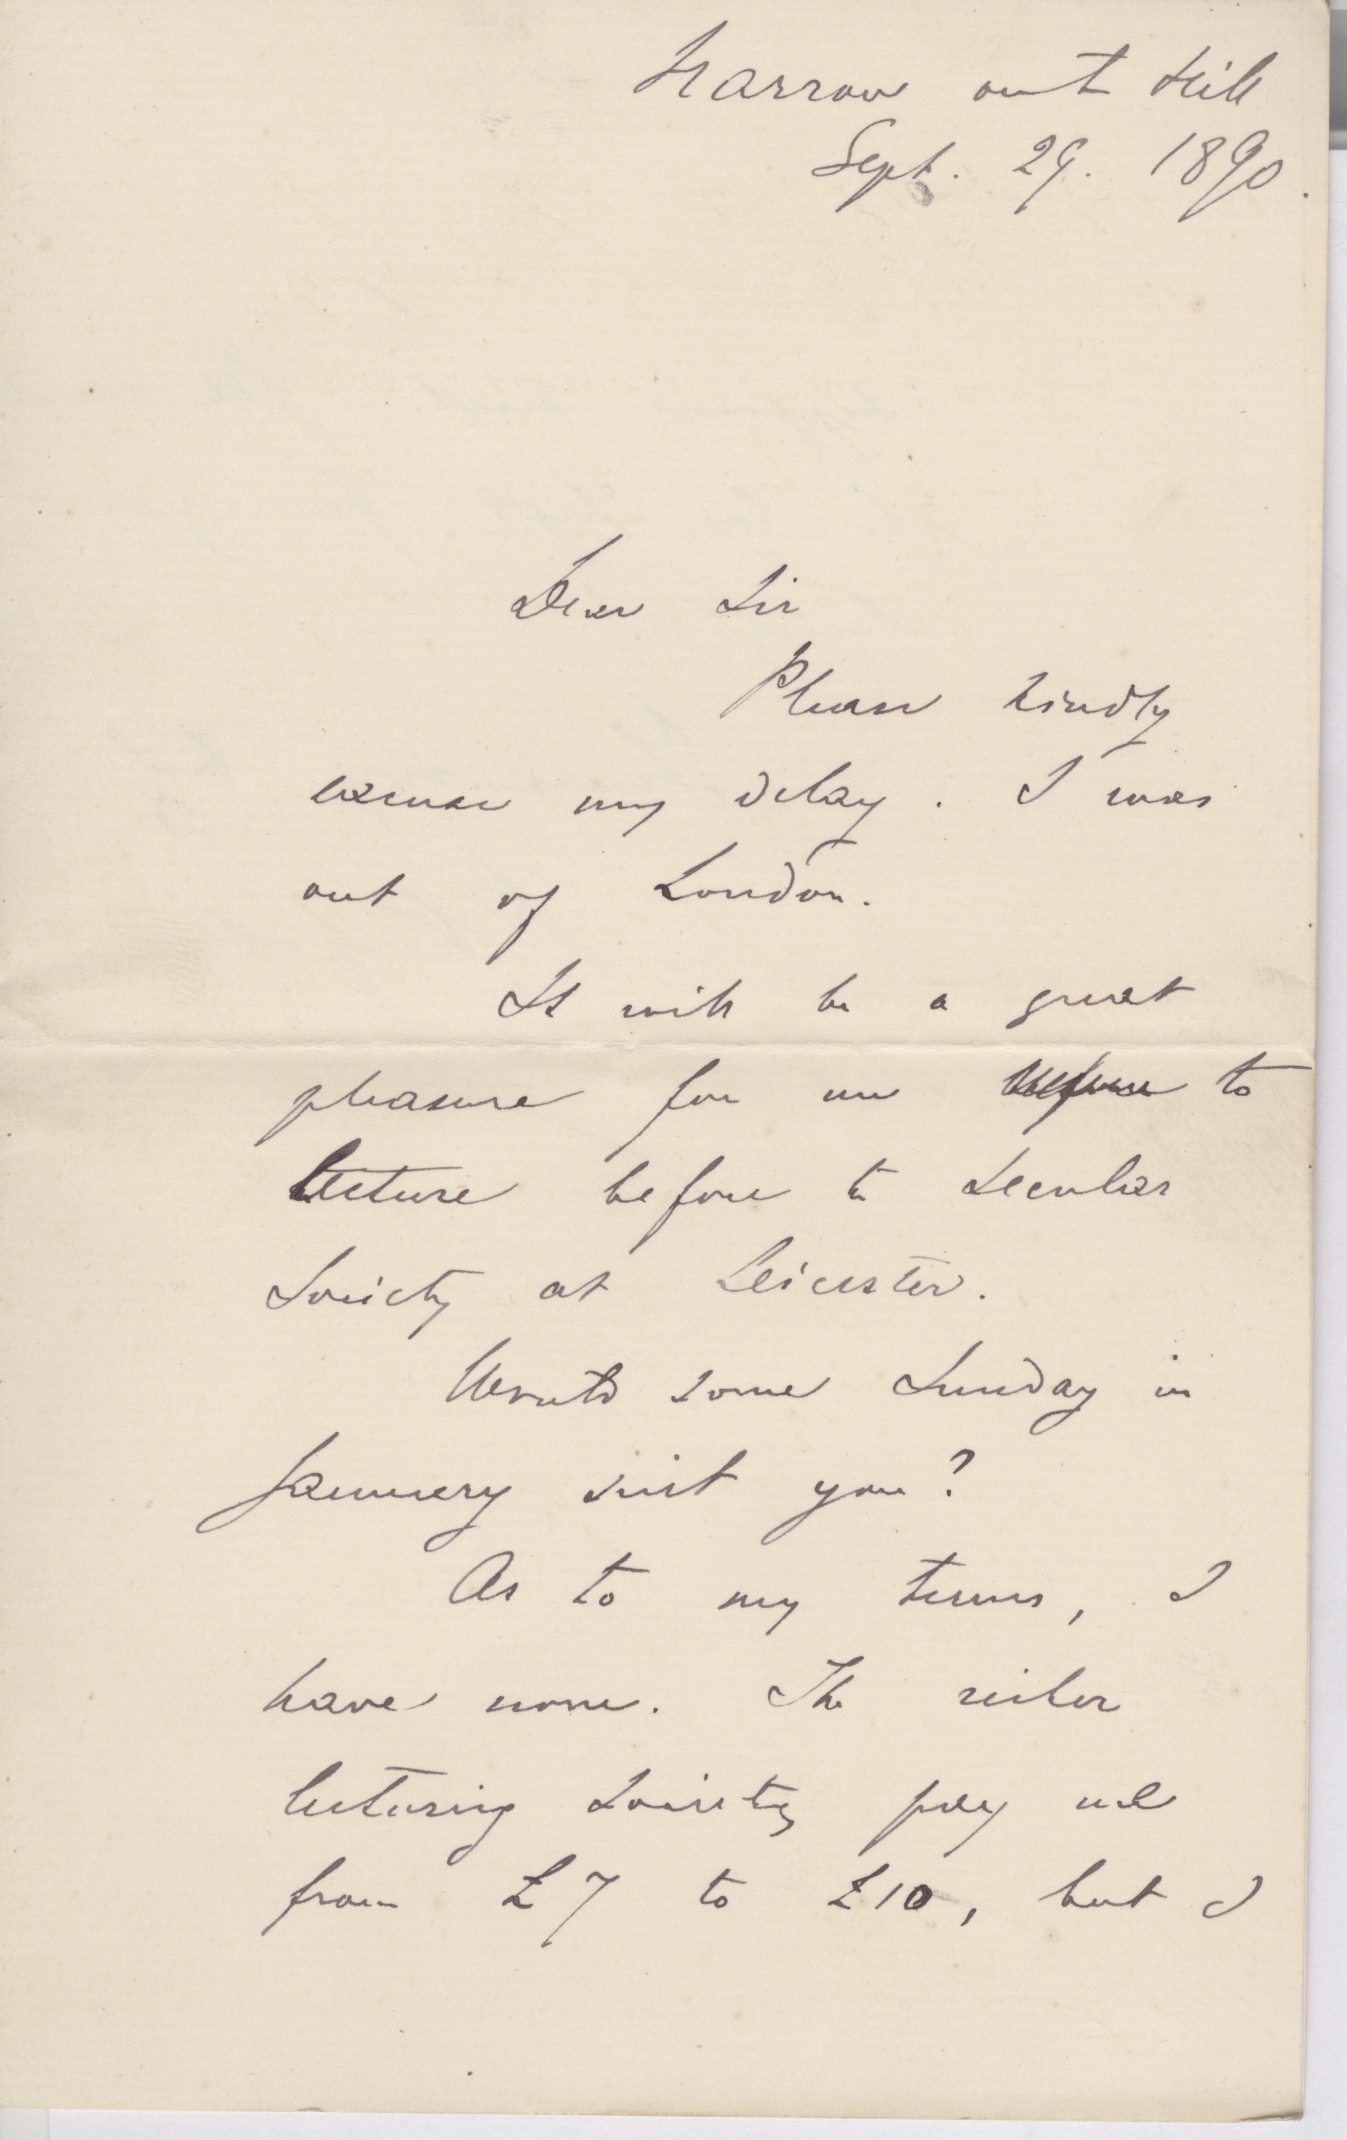 Harrow on t Hill
Sept. 29. 1890.
Dear Sir
Please kindly
excuse my delay. I was
out of London.
It will be a great
pleasure for me before to
lecture before the Secular
Society at Leicester.
Would some Sunday in
January suit you?
As to my terms, I
have none. The richer
lecturing Society pay me
from £7 to £10, but I